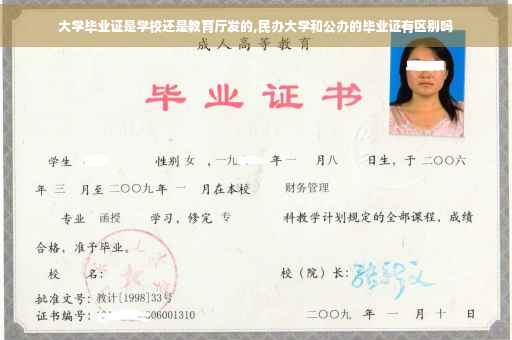 大学毕业证是学校还是教育厅发的,民办大学和公办的毕业证有区别吗
成人高等教育
毕业证书
学生 性别 女 ,一九 年一 月八 日生,于二〇〇六
年 三 月至二〇〇九年 一 月在本校 财务管理
专业 函授 学习,修完 专 科教学计划规定的全部课程,成绩
合格,准予毕业。
校 名: 校(院)长:
批准文号:教计[1998]33号
证书编号: 06001310 二〇〇九 年 一 月 十 日